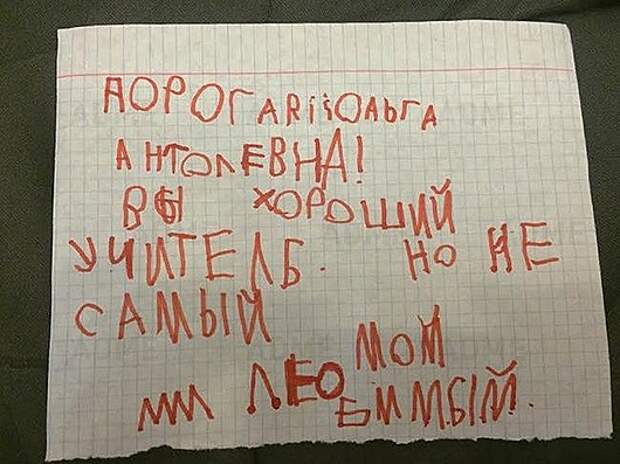 ДОРОГАЯ ОЛЬГА
АНТОЛЕВНА!
ВЫ ХОРОШИЙ
УЧИТЕЛЬ. НО НЕ
САМЫЙ МОЙ
ЛЕО
БИМЫЙ.